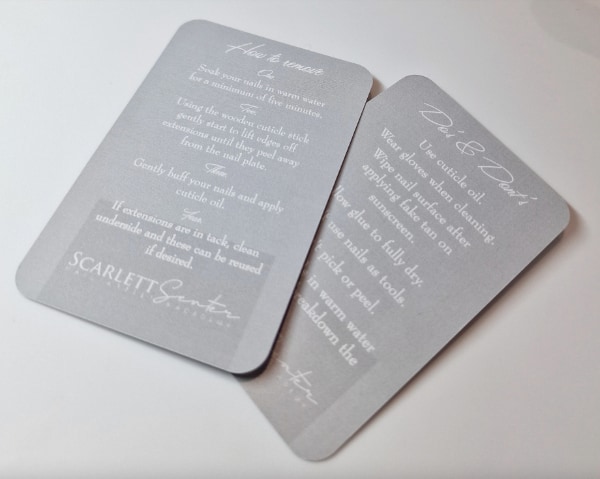 How to remove
One
Soak your nails in warm water
for a minimum of five minutes.
Two
Using the wooden cuticle stick
gently start to lift edges off
extensions until they peel away
from the nail plate.
Three
Gently buff your nails and apply
cuticle oil.
Four
If extensions are in tack, clean
underside and these can be reused
if desired.
SCARLETT Senter
Do's & Dont's
Use cuticle oil.
Wear gloves when cleaning.
Wipe nail surface after
applying fake tan or
sunscreen.
glue to fully dry.
use nails as tools.
pick or peel.
in warm water
the